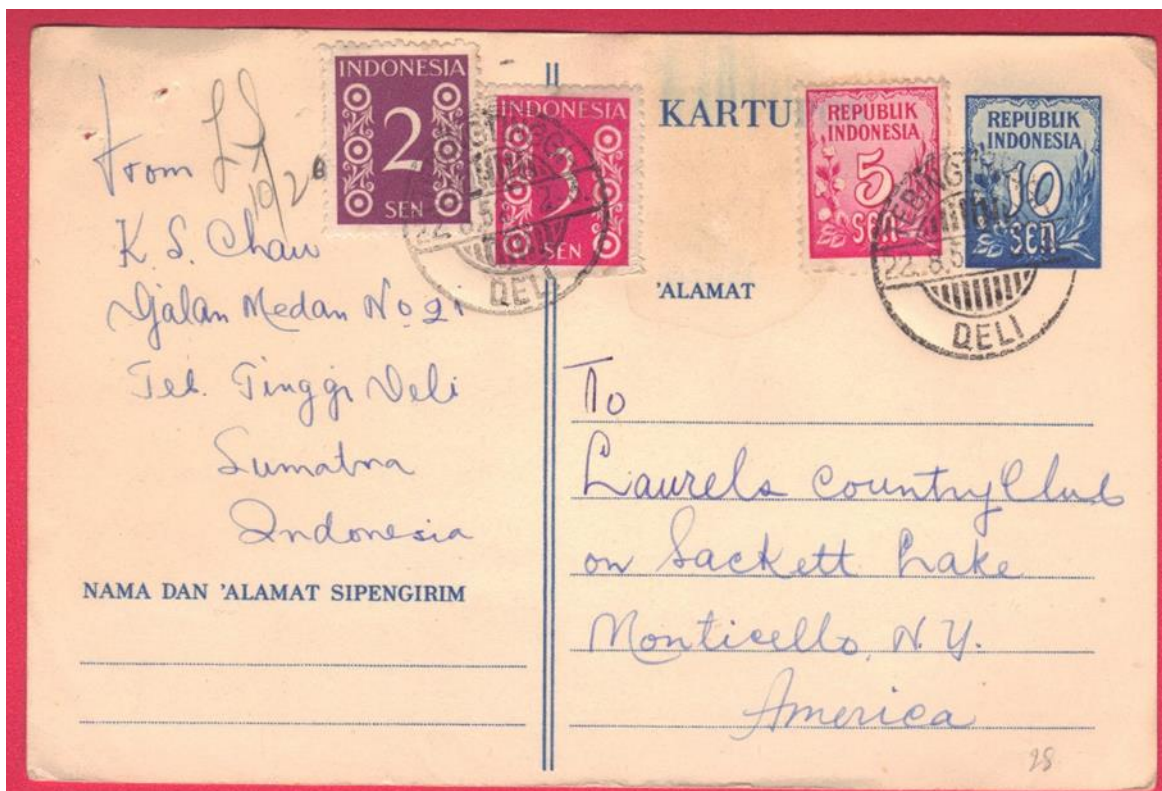 From
K. S. Chau
Djalan Medan No 21
Teb. Tinggi Deli
Sumatra
Indonesia
NAMA DAN 'ALAMAT SIPENGIRIM
INDONESIA
2
SEN
INDONESIA
3
SEN
DELI
KARTU
REPUBLIK
INDONESIA
5
SEN
REPUBLIK
INDONESIA
10
SEN
22.8.5
DELI
'ALAMAT
To
Laurels Country Club
on Sackett Lake
Monticello, N.Y.
America